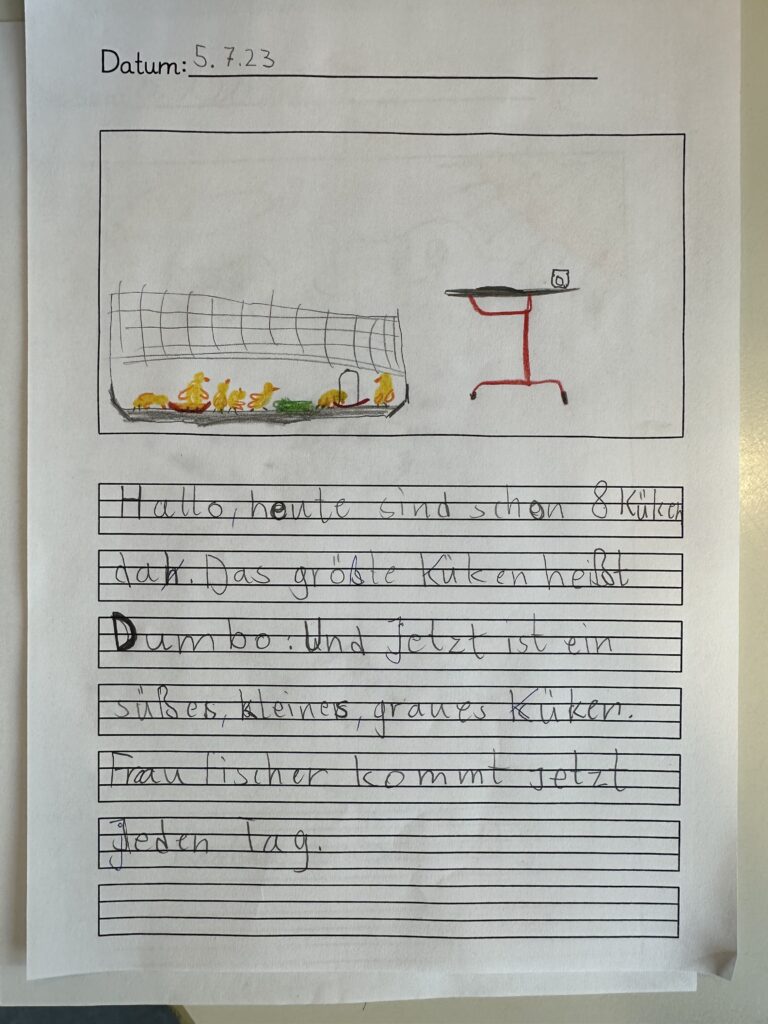 Datum: 5.7.23
Hallo, heute sind schon 8 Küken
dar. Das größte Küken heißt
Dumbo. Und jetzt ist ein
süßes, kleines, graues Küken.
Frau Fischer kommt jetzt
jeden Tag.